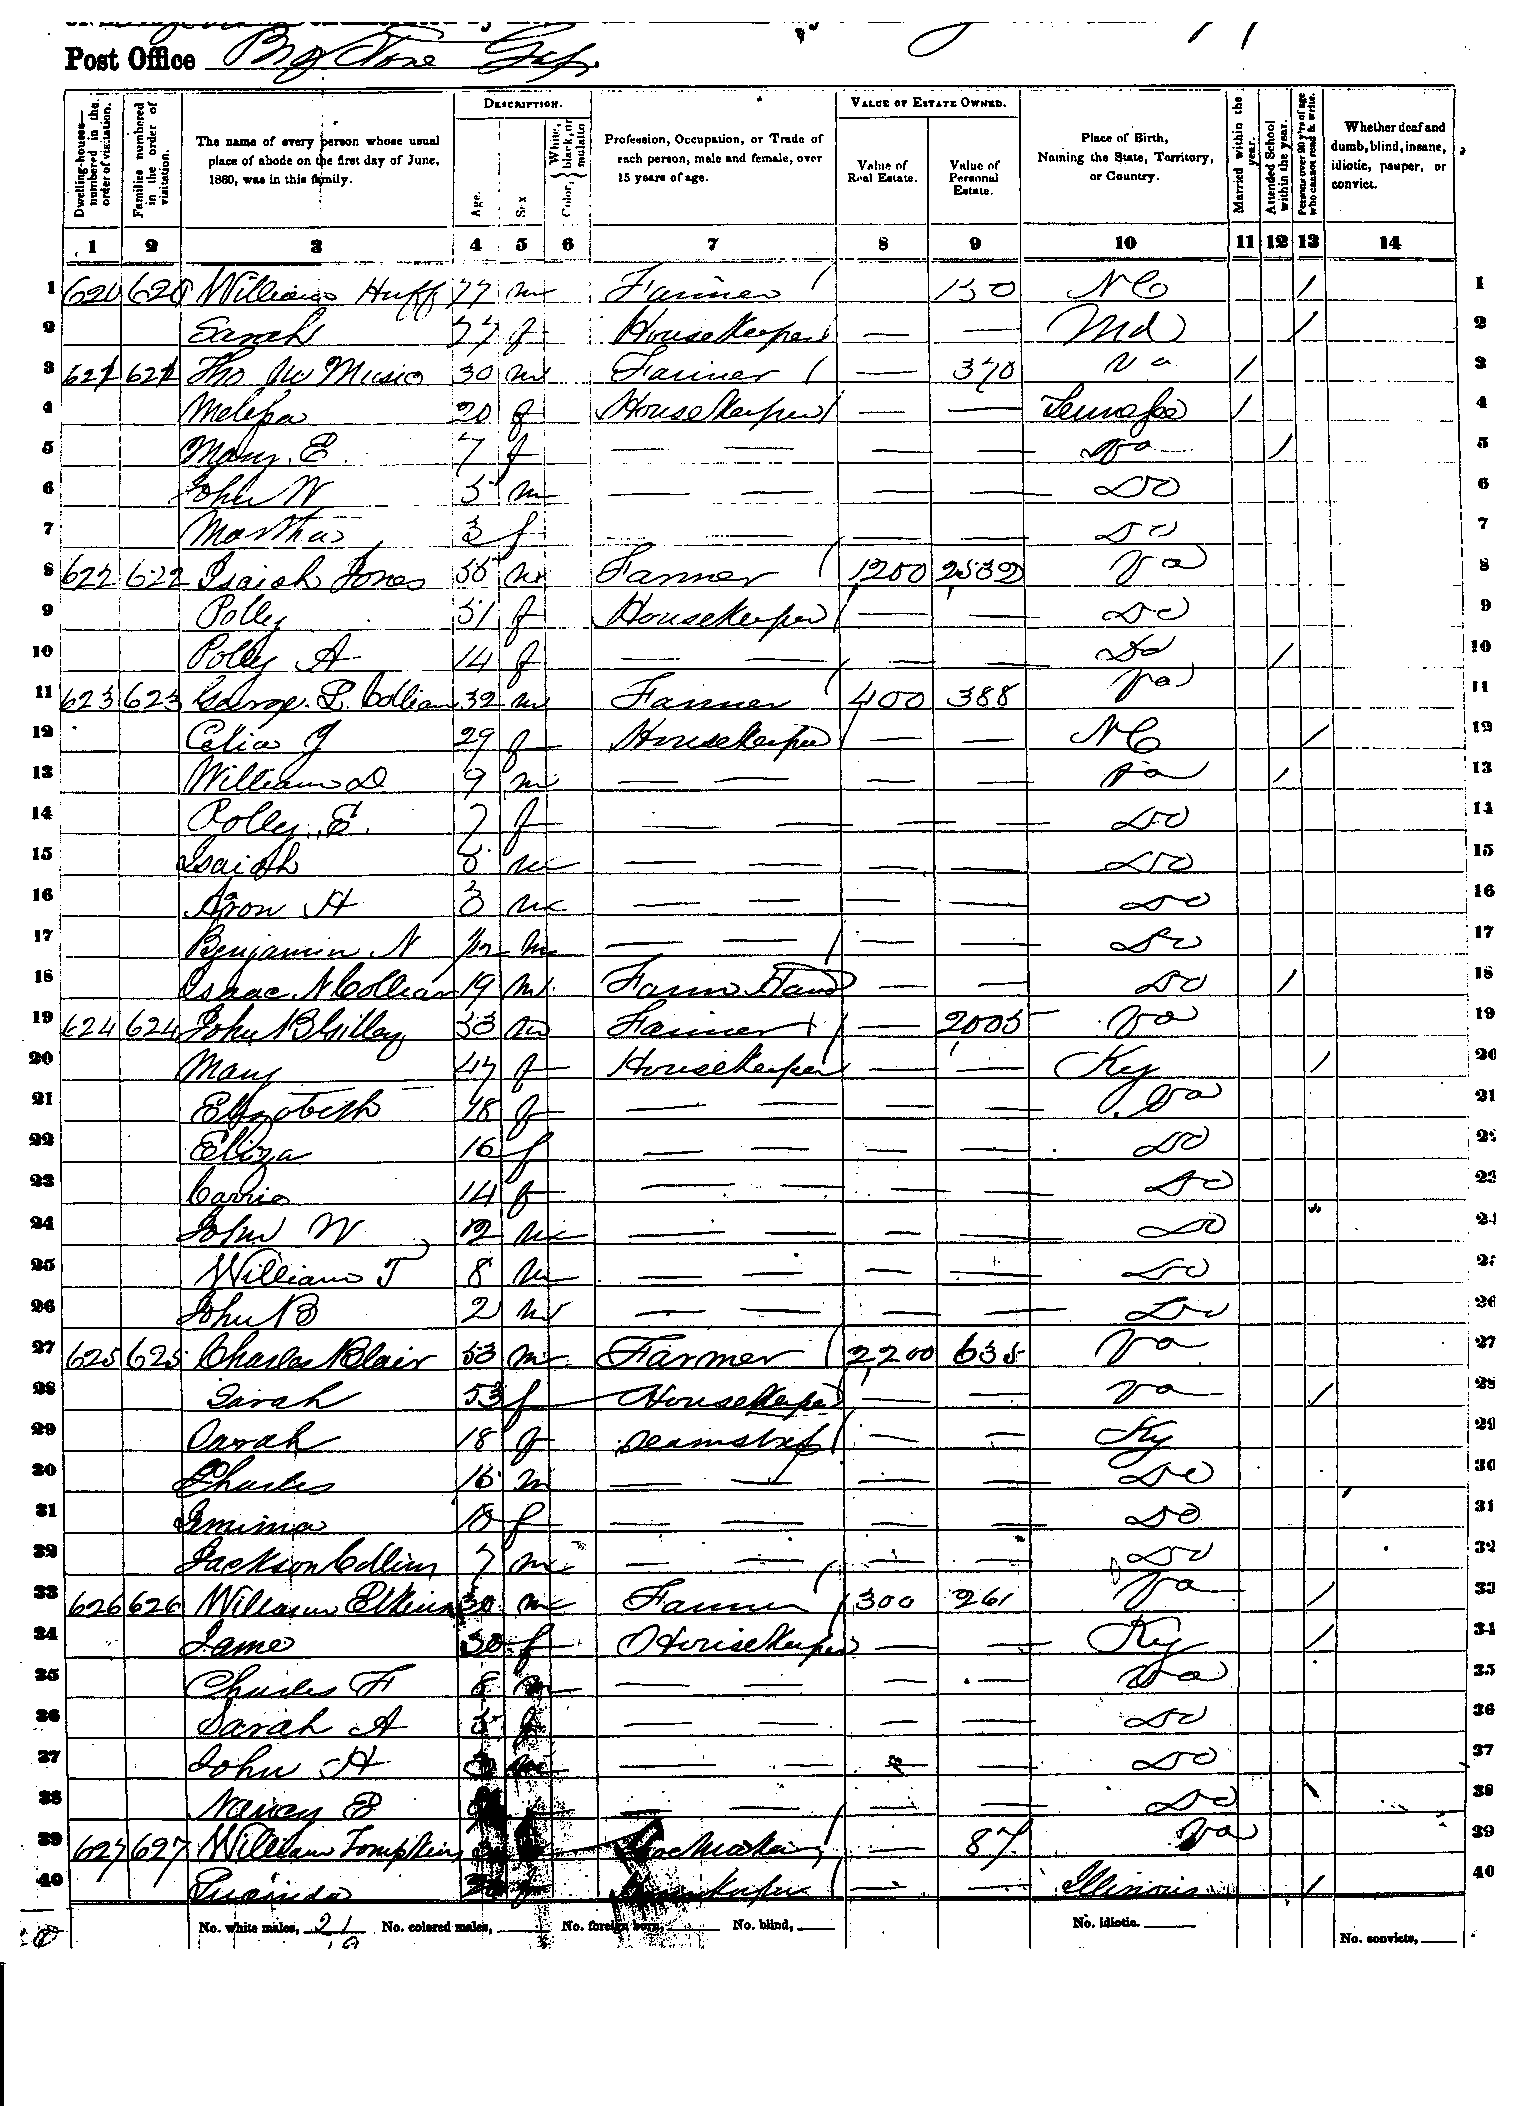 Post Office Big Stone Gap
Dwelling-houses—numbered in the order of visitation.
Families numbered in the order of visitation.
The name of every person whose usual place of abode on the first day of June, 1860, was in this family.
DESCRIPTION.
Age.
Sex
Color, White, black, or mulatto
Profession, Occupation, or Trade of each person, male and female, over 15 years of age.
VALUE OF ESTATE OWNED.
Value of Real Estate.
Value of Personal Estate.
Place of Birth, Naming the State, Territory, or Country.
Married within the year.
Attended School within the year.
Persons over 20 y'rs of age who cannot read & write.
Whether deaf and dumb, blind, insane, idiotic, pauper, or convict.
1 2 3 4 5 6 7 8 9 10 11 12 13 14
1 620 620 William Huff 77 m Farmer 130 NC / 1
2 Sarah 77 f Housekeeper — — Md / 2
3 621 621 Tho 30 m Farmer — 370 Va / 3
4 20 f Housekeeper — — / 4
5 Mary E. 7 f — — — — Va / 5
6 John W 5 m — — — — Do 6
7 Martha 3 f — — — — Do 7
8 622 622 Isaiah Jones 55 m Farmer 1200 2532 Va 8
9 Polly 51 f Housekeeper — — Do 9
10 Polly A 14 f — — — — Do / 10
11 623 623 George P. Collier 32 m Farmer 400 388 Va 11
12 Celia J 29 f Housekeeper — — NC / 12
13 William D 9 m — — — — Va / 13
14 Polly E. 7 f — — — — Do 14
15 Isaiah m — — — — Do 15
16 Aron H 3 m — — — — Do 16
17 Benjamin N m — — — — Do 17
18 Isaac N Collier 19 m Farm Hand — — Do / 18
19 624 624 John B Gilley 53 m Farmer — 2005 Va 19
20 Mary 47 f Housekeeper — — Ky / 20
21 Elizabeth 18 f — — — — Va 21
22 Eliza 16 f — — — — Do 22
23 14 f — — — — Do 23
24 John W 12 m — — — — Do 24
25 William T 8 m — — — — Do 25
26 John B 2 m — — — — Do 26
27 625 625 Charles Blair 53 m Farmer 2200 635 Va 27
28 Sarah 53 f Housekeeper — — Va / 28
29 Sarah 18 f Seamstress — — Ky 29
30 Charles 16 m — — — — Do 30
31 f — — — — Do 31
32 Jackson Collins 7 m — — — — Do 32
33 626 626 William Elkins 30 m Farmer 300 261 Va / 33
34 Jane 30 f Housekeeper — — Ky / 34
35 Charles F 8 m — — — — Va 35
36 Sarah A 5 f — — — — Do 36
37 John H m — — — — Do 37
38 Nancy — — — — Do 38
39 627 627 William Tompkins — 87 Va 39
40 Lucinda f Housekeeper — — Illinois / 40
No. white males, 21 No. colored males, No. foreign born, No. blind, No. idiotic. No. convicts,